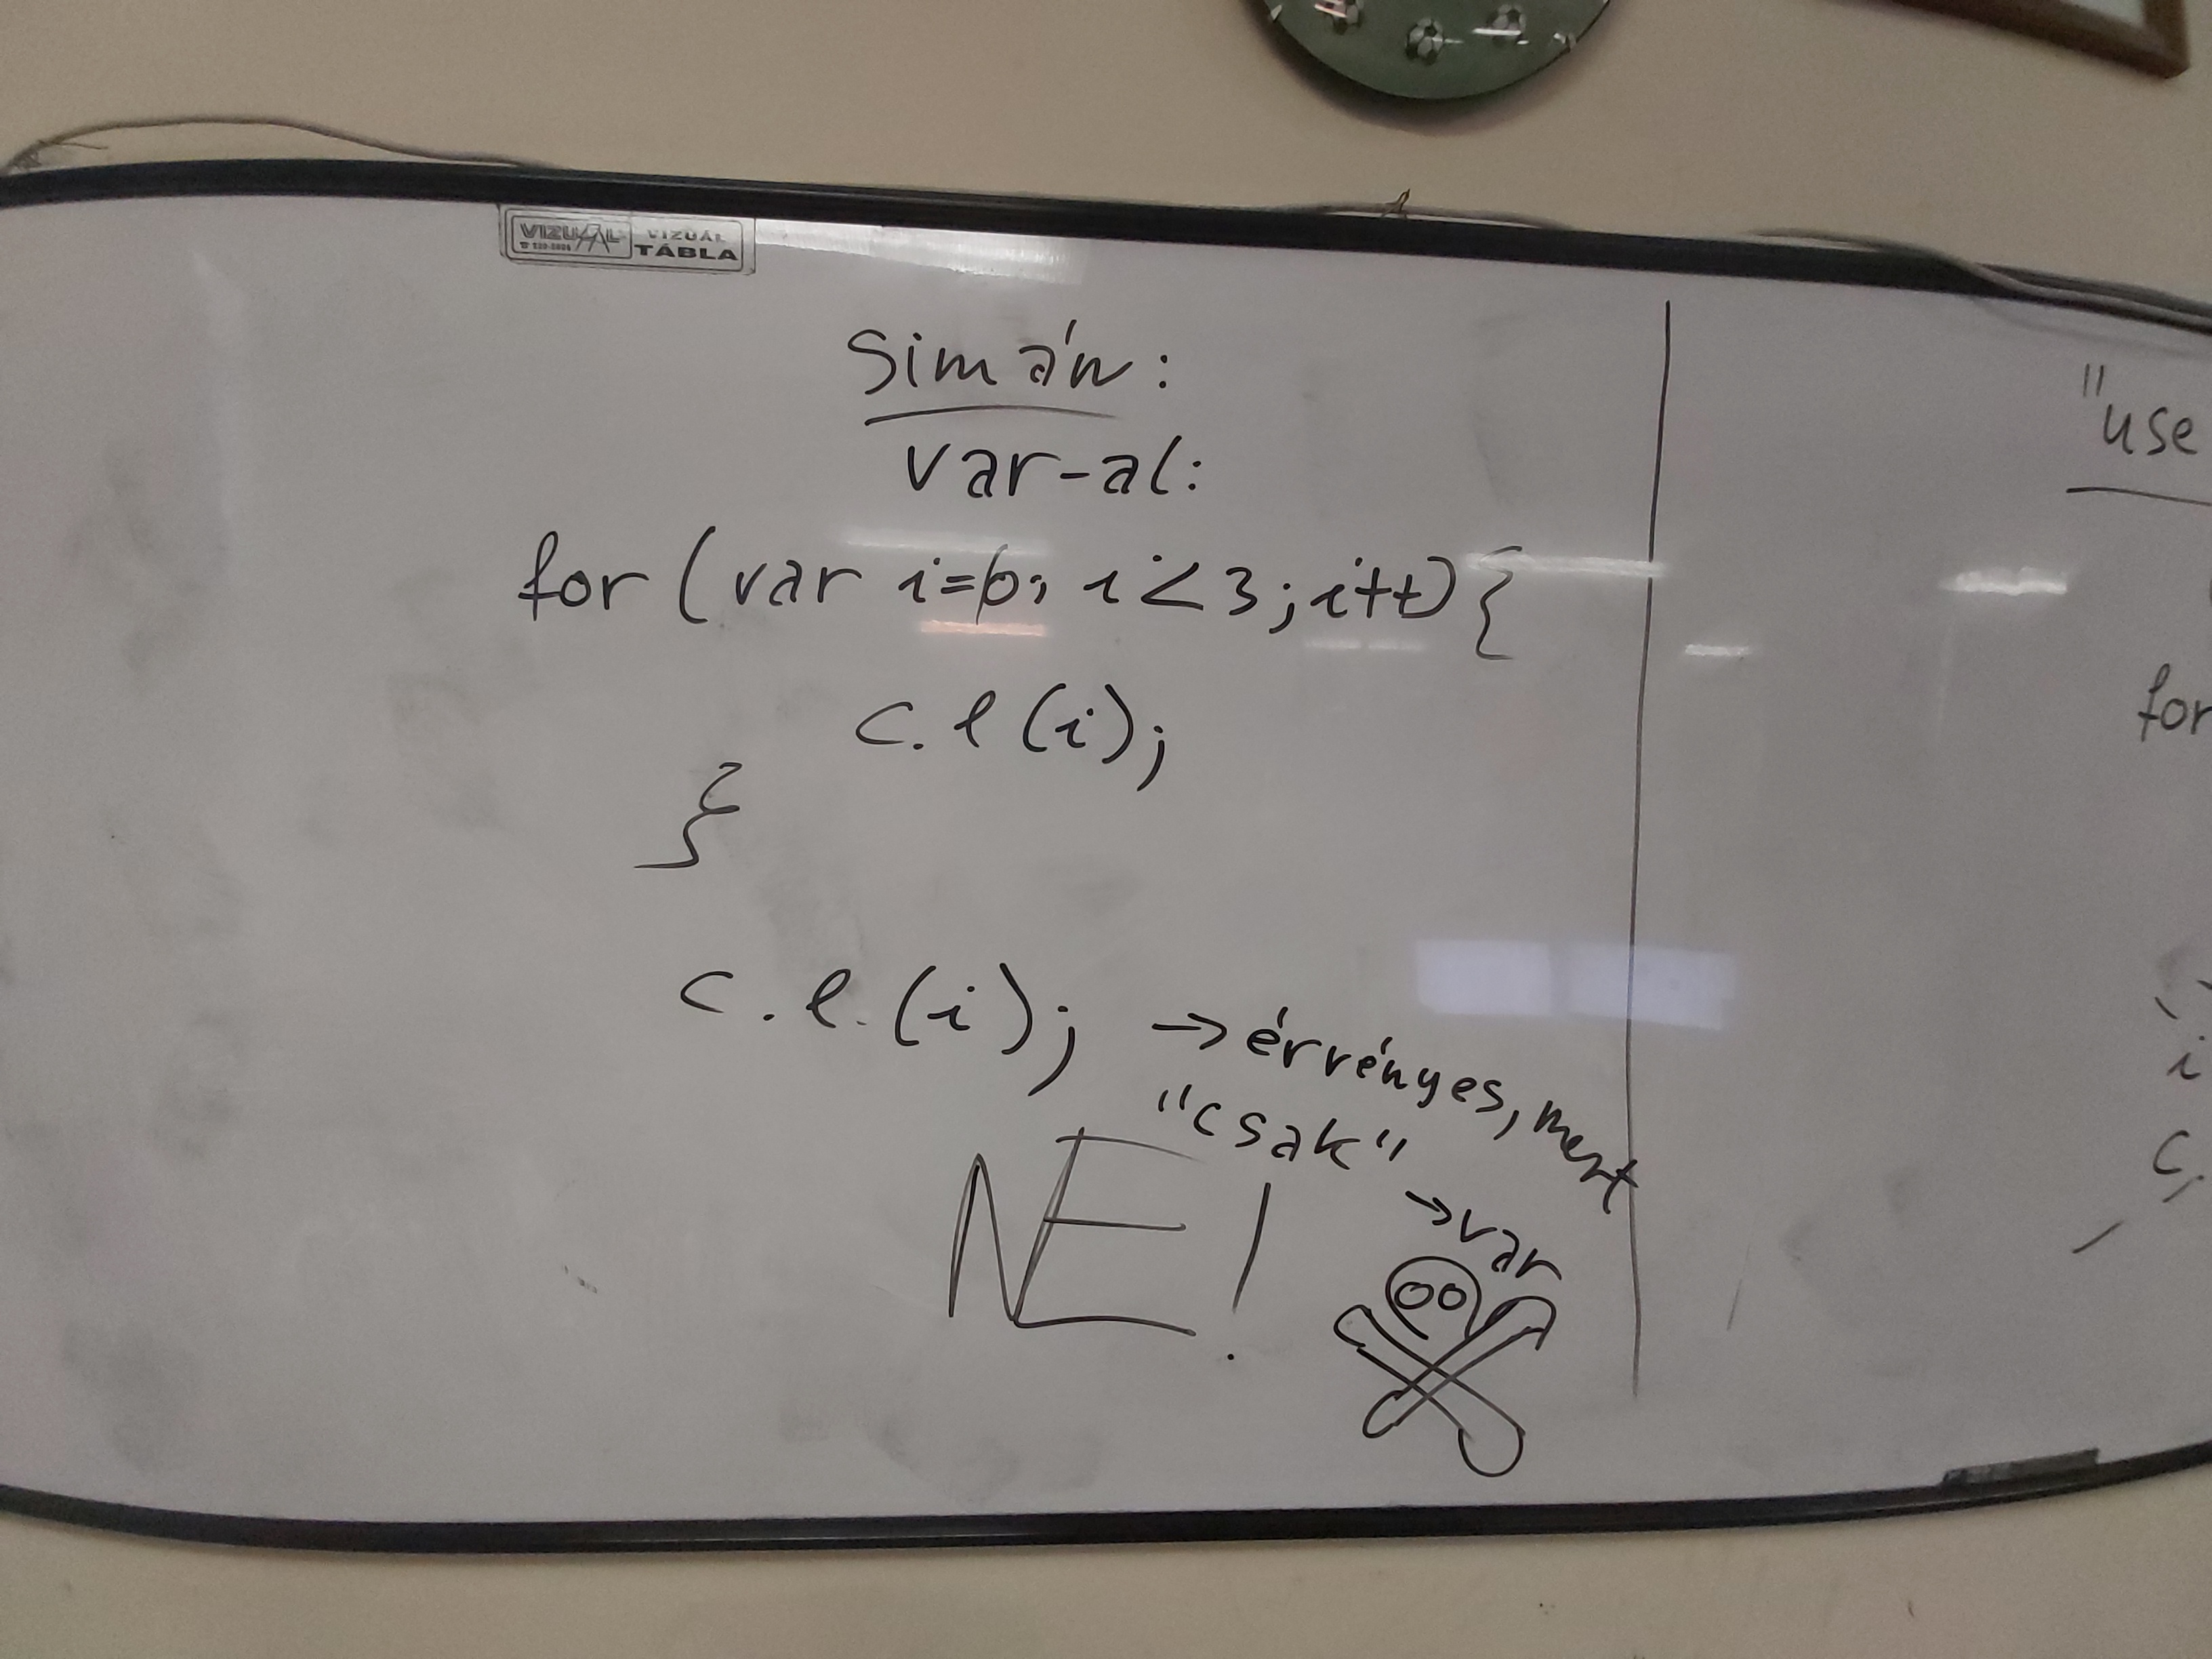 VIZUÁL VIZUÁL
TÁBLA
simán:
var-al:
for (var i=0; i<3; i++) {
c.l(i);
}
c.l.(i); → érvényes, mert
"csak"
→ var
NE!
"use
for
i
c.